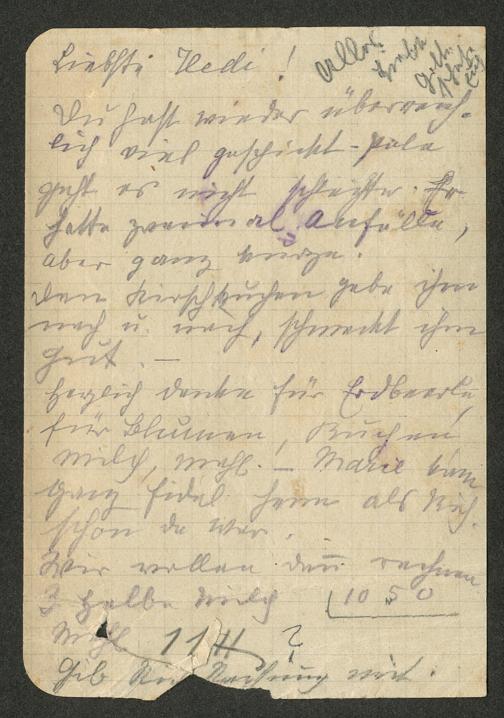 Liebste Hedi!
Alles Liebe
Du hast wieder überreich-
lich viel geschickt - Pola
geht es nicht schlechter. Er
hatte zweimal Anfälle,
aber ganz kurze.
Den Kirschkuchen gebe ihm
nach u. nach, schmeckt ihm
gut. —
Herzlich danke für Erdbeerle,
für Blumen, Kuchen
Milch, Mehl. — Marie kam
ganz fidel heim als
schon da war.
Wir wollen dann rechnen
3 Halbe Milch 10 50
Mehl 11 H ?
Gib Rechnung mit.